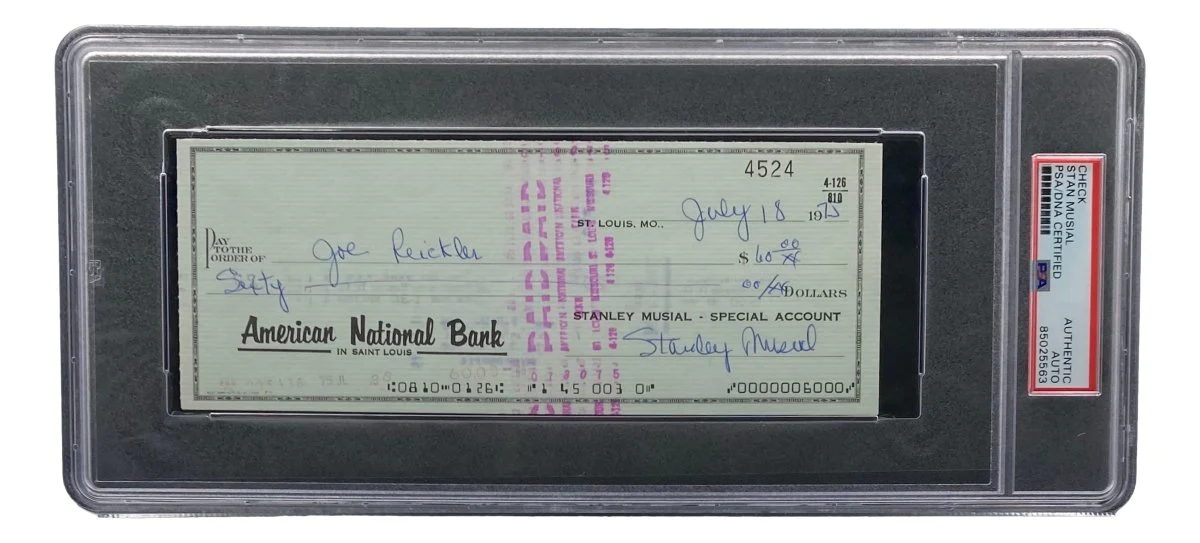 4524
4-126
810
ST. LOUIS, MO., July 18 1975
PAY TO THE ORDER OF Joe Reichler
$ 60 00/XX
Sixty 00/XX DOLLARS
STANLEY MUSIAL - SPECIAL ACCOUNT
American National Bank
IN SAINT LOUIS
Stanley Musial
⑆0810⑉0126⑆ ⑈1 45 003 0⑈ ⑈0000006000⑈
CHECK
STAN MUSIAL
PSA/DNA CERTIFIED
PSA
AUTHENTIC
AUTO
85025563